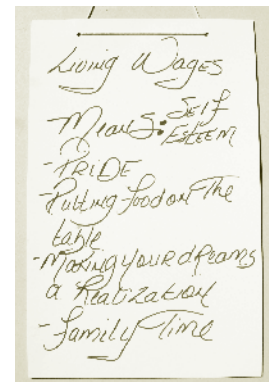 Living Wages
Means: Self
Esteem
- PRIDE
- Putting food on The
table
- Making your dreams
a Realization
- family Time